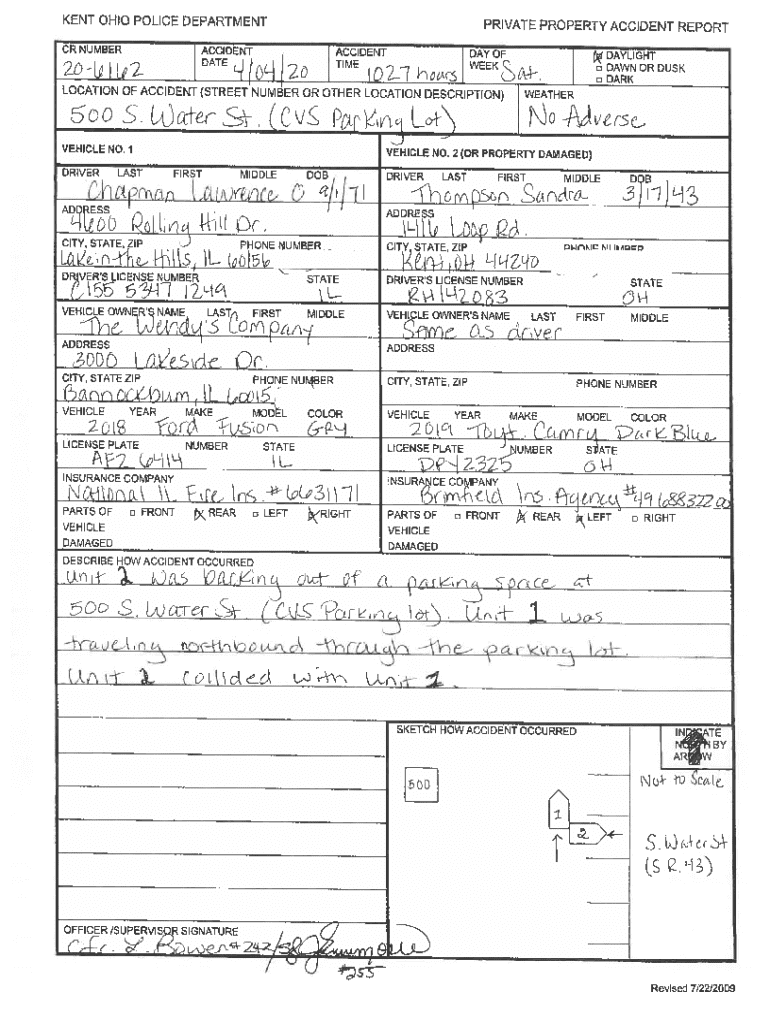 KENT OHIO POLICE DEPARTMENT
PRIVATE PROPERTY ACCIDENT REPORT
CR NUMBER ACCIDENT DATE ACCIDENT TIME DAY OF WEEK DAYLIGHT
20-6162 4/04/20 1027 hours Sat. DAWN OR DUSK
DARK
LOCATION OF ACCIDENT (STREET NUMBER OR OTHER LOCATION DESCRIPTION) WEATHER
500 S. Water St. (CVS Parking Lot) No Adverse
VEHICLE NO. 1 VEHICLE NO. 2 (OR PROPERTY DAMAGED)
DRIVER LAST FIRST MIDDLE DOB DRIVER LAST FIRST MIDDLE DOB
Chapman Lawrence O 9/1/71 Thompson Sandra 3/17/43
ADDRESS ADDRESS
4600 Rolling Hill Dr. 1416 Loop Rd.
CITY, STATE, ZIP PHONE NUMBER CITY, STATE, ZIP PHONE NUMBER
Lake in the Hills, IL 60156 Kent, OH 44240
DRIVER'S LICENSE NUMBER STATE DRIVER'S LICENSE NUMBER STATE
C155 5347 1249 IL RH142083 OH
VEHICLE OWNER'S NAME LAST FIRST MIDDLE VEHICLE OWNER'S NAME LAST FIRST MIDDLE
The Wendy's Company Same as driver
ADDRESS ADDRESS
3000 Lakeside Dr.
CITY, STATE ZIP PHONE NUMBER CITY, STATE, ZIP PHONE NUMBER
Bannockburn, IL 60015
VEHICLE YEAR MAKE MODEL COLOR VEHICLE YEAR MAKE MODEL COLOR
2018 Ford Fusion GRY 2019 Toyt. Camry Dark Blue
LICENSE PLATE NUMBER STATE LICENSE PLATE NUMBER STATE
AF2 6414 IL DPY2325 OH
INSURANCE COMPANY INSURANCE COMPANY
National IL Fire Ins. #6631171 Brimfield Ins. Agency #4968832200
PARTS OF VEHICLE DAMAGED FRONT REAR LEFT RIGHT PARTS OF VEHICLE DAMAGED FRONT REAR LEFT RIGHT
DESCRIBE HOW ACCIDENT OCCURRED
Unit 2 was backing out of a parking space at
500 S. Water St. (CVS Parking lot). Unit 1 was
traveling northbound through the parking lot.
Unit 2 collided with Unit 1.
SKETCH HOW ACCIDENT OCCURRED INDICATE NORTH BY ARROW
500 Not to Scale
1
2 S. Water St
(S R. 43)
OFFICER /SUPERVISOR SIGNATURE
Ofc. L. Bowen #242/
#255
Revised 7/22/2009